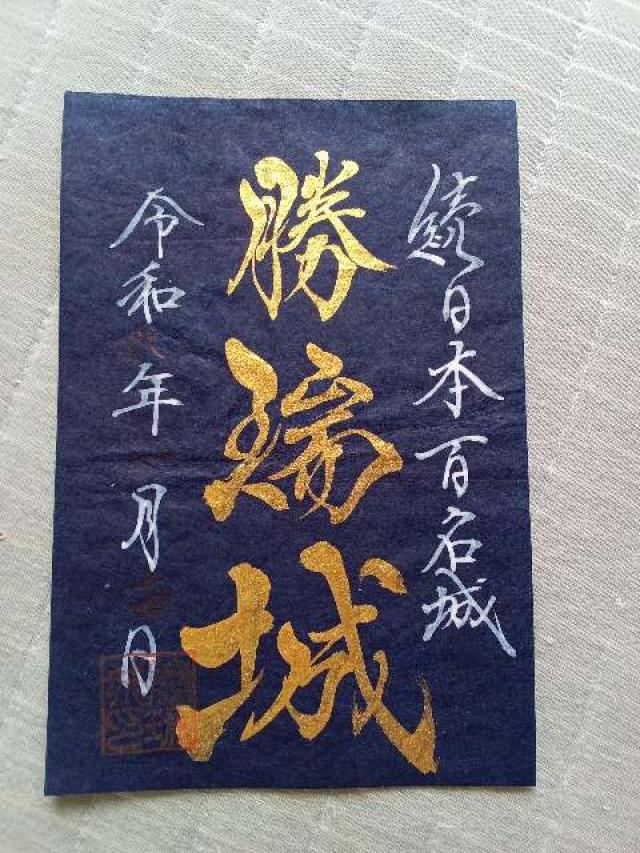 続日本百名城
勝瑞城
令和年月日